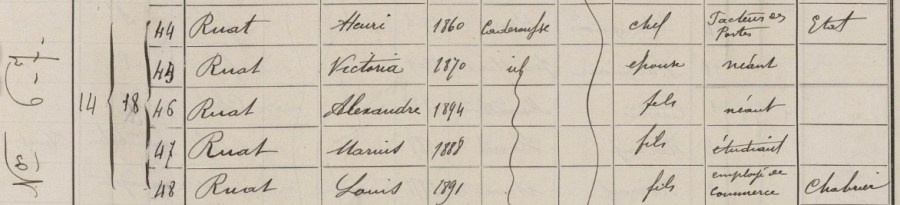 44 Ruat Henri 1860 Caderousse chef Facteur des Postes Etat
45 Ruat Victoria 1870 id épouse néant
14 18 46 Ruat Alexandre 1894 fils néant
47 Ruat Marius 1888 fils étudiant
48 Ruat Louis 1891 fils employé de Commerce Chabrier